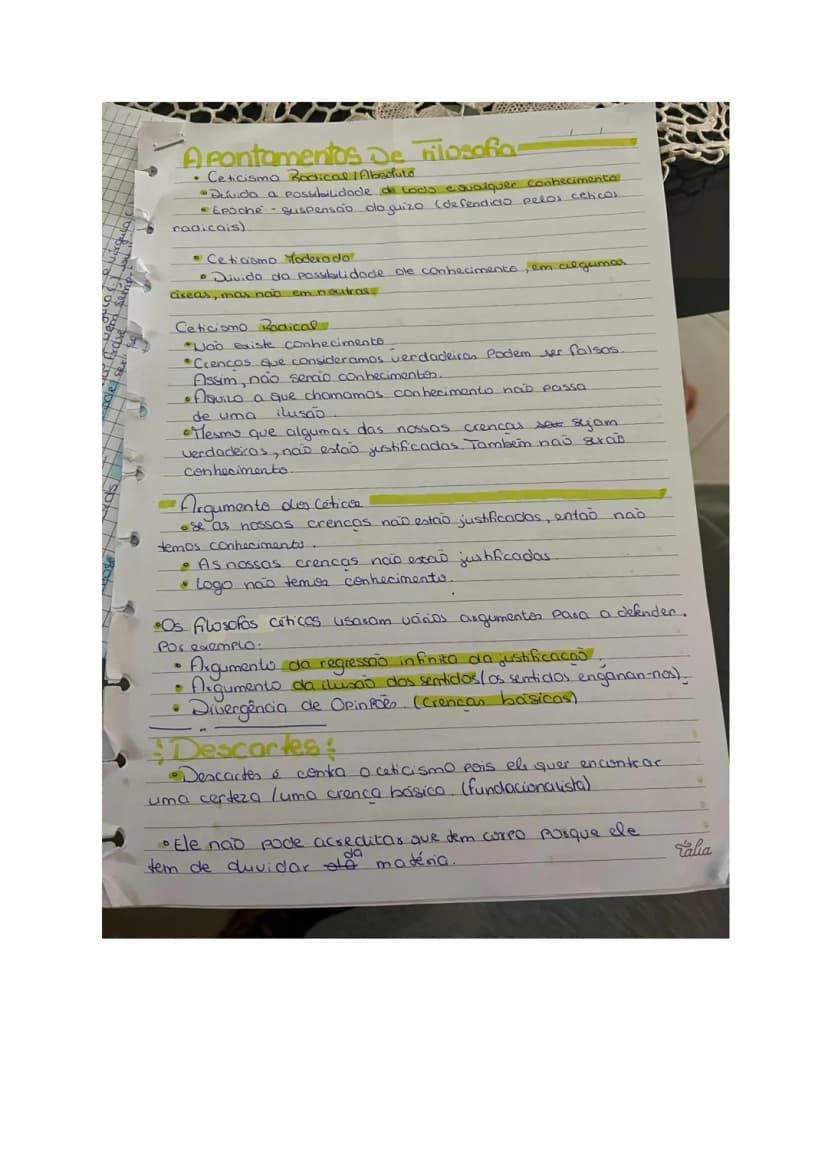 Apontamentos De Filosofia
• Ceticismo Radical/Absoluto
• Dúvida a possibilidade de todo e qualquer conhecimento
• Epoché - suspensão do guizo (defendido pelos ceticos
radicais)
• Ceticismo Moderado
• Dúvida da possibilidade de conhecimento, em algumas
áreas, mas não em noutras.
Ceticismo Radical
• Não existe conhecimento
• Crenças que consideramos verdadeiras Podem ser falsas.
Assim, não serão conhecimentos.
• Aquilo a que chamamos conhecimento não passa
de uma ilusão
• Mesmo que algumas das nossas crenças sejam
verdadeiras, não estão justificadas. Também não serão
conhecimento.
Argumento dos Céticos
• se as nossas crenças não estão justificadas, então não
temos conhecimento.
• As nossas crenças não estão justificadas
• Logo não temos conhecimento.
• Os filosofos céticos usaram vários argumentos para a defender.
Por exemplo:
• Argumento da regressão infinita da justificação.
• Argumento da ilusão dos sentidos (os sentidos enganan-nos)
• Divergência de Opiniões (crenças básicas)
Descartes:
• Descartes é contra o ceticismo pois ele quer encontrar
uma certeza /uma crença básica. (fundacionalista)
• Ele não pode acreditar que tem corpo porque ele
tem de duvidar da matéria.
Talia